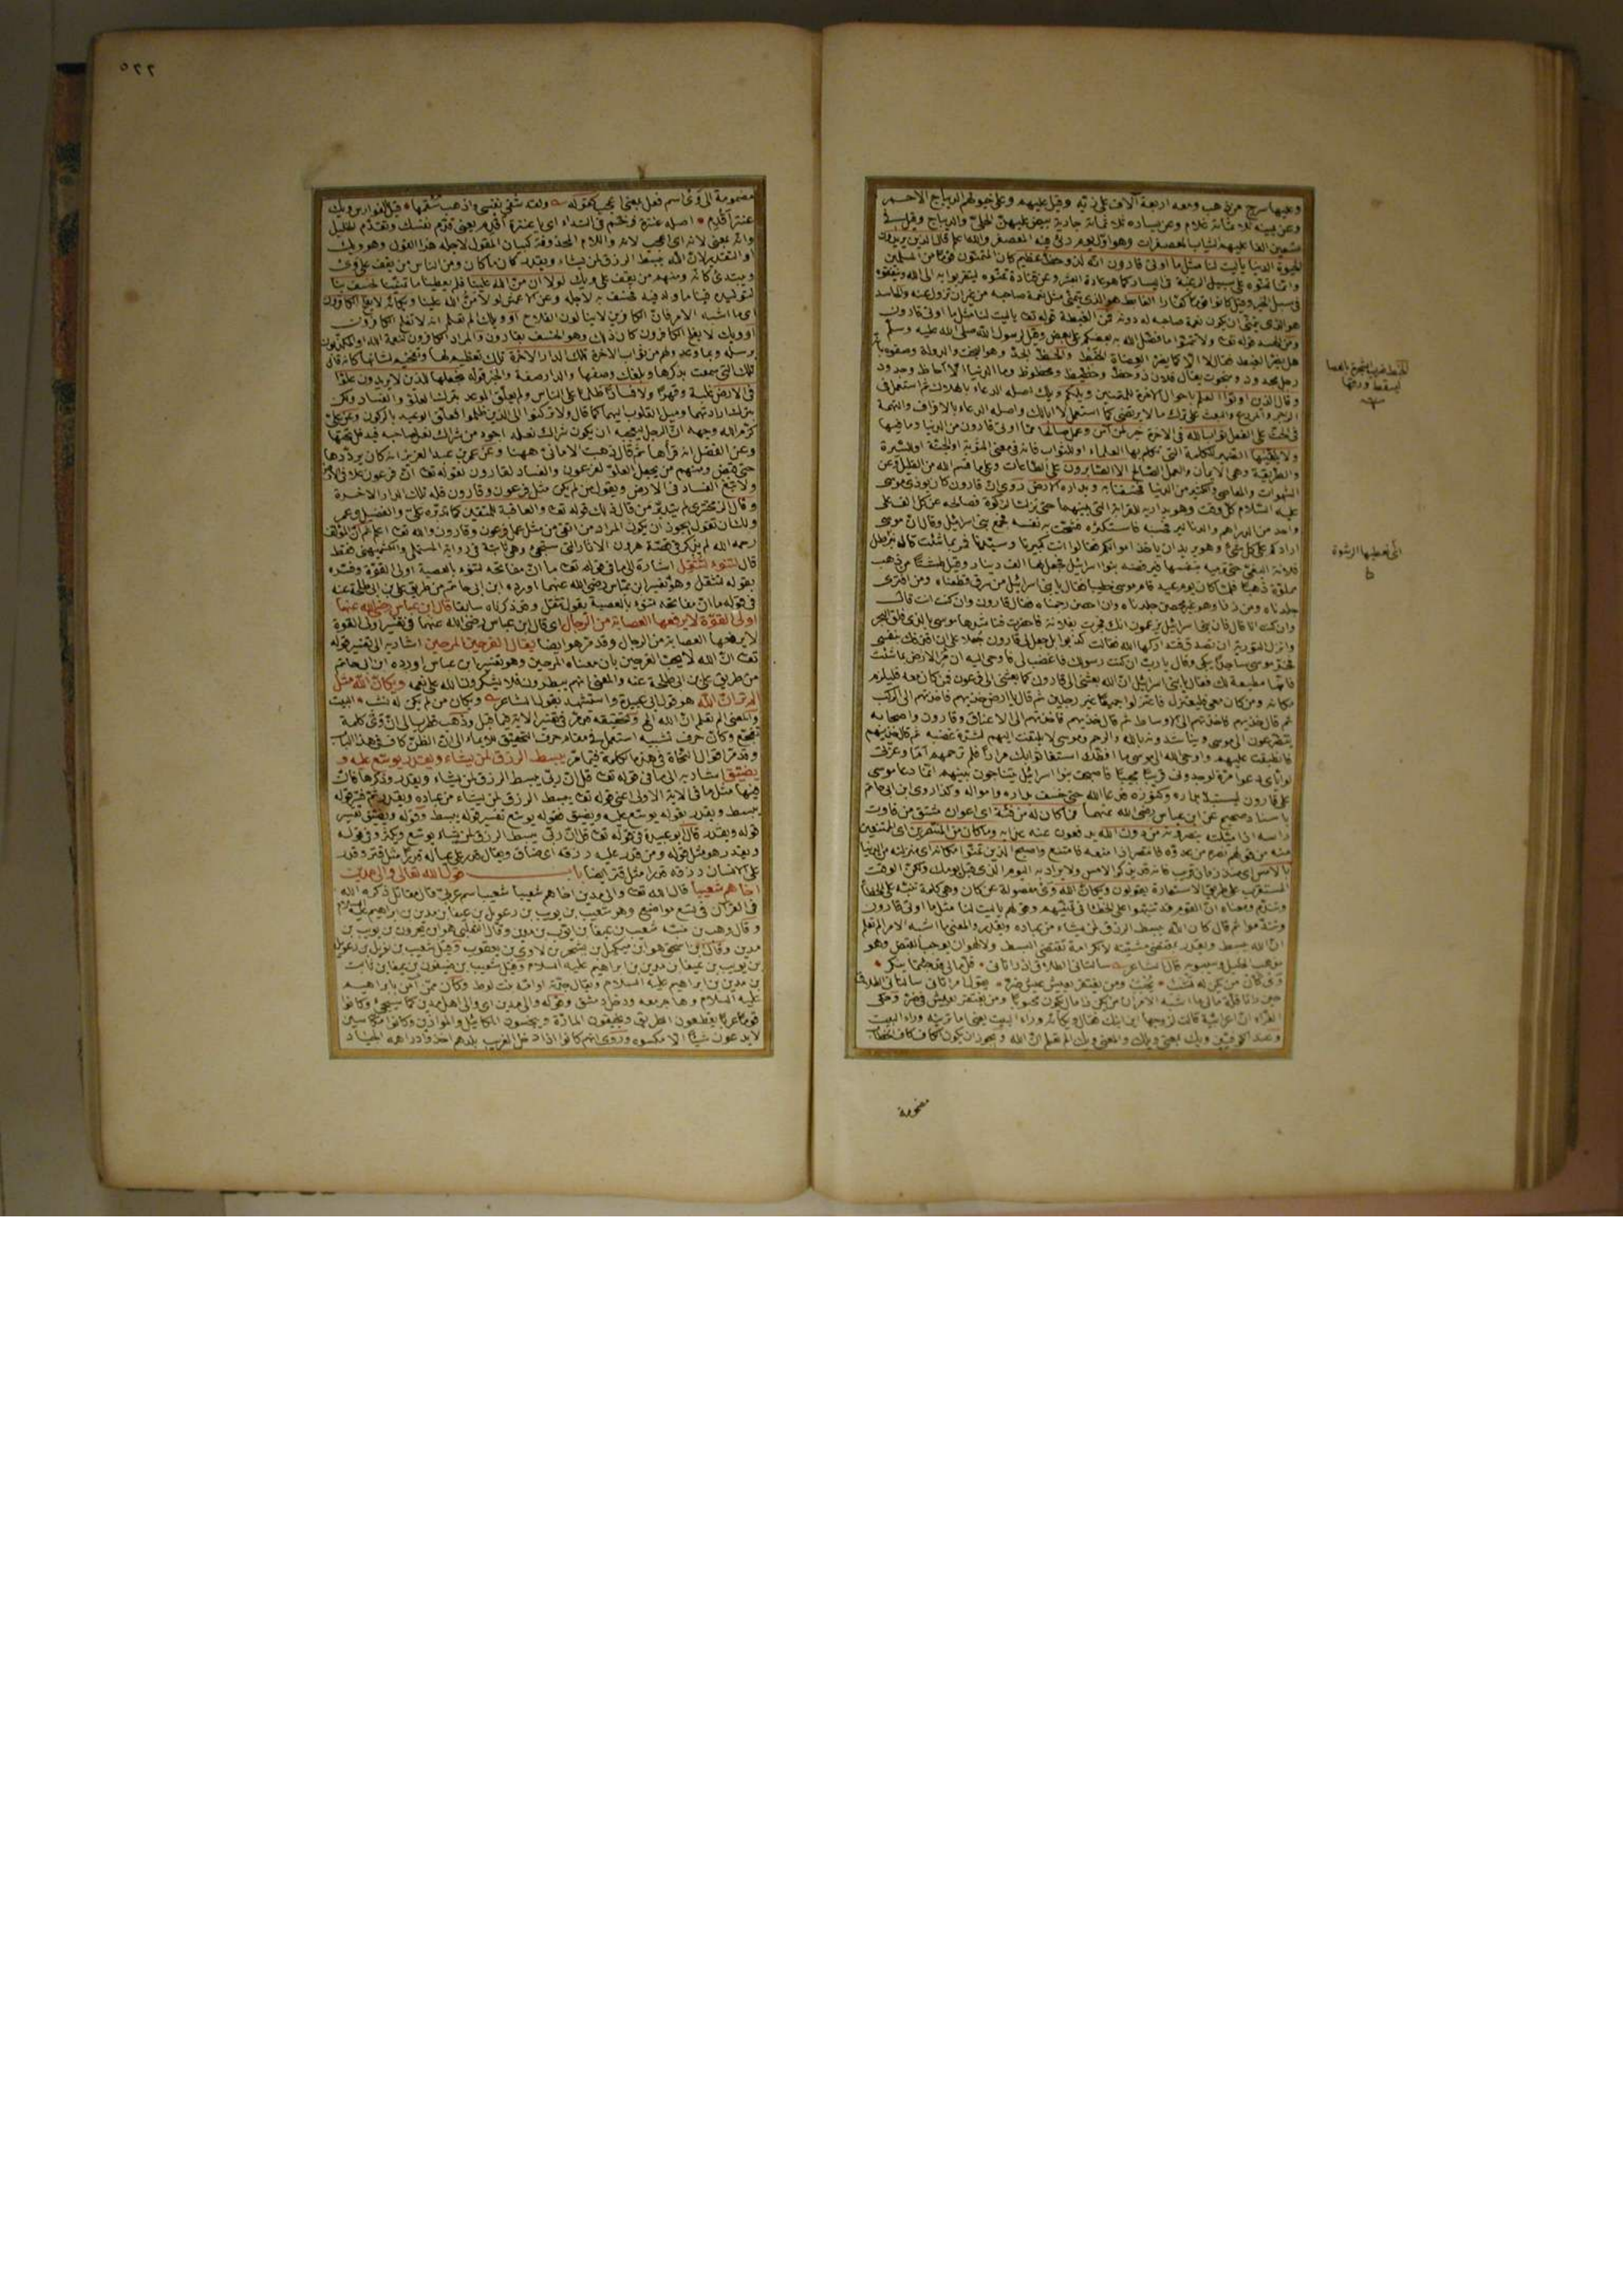 وعليها سرج من ذهب ومعه اربعة آلاف على زيه وقيل عليهم وعلى خيولهم الديباج الاحمر
وعن يمينه ثلاثمائة غلام وعن يساره ثلاثمائة جارية بيض عليهن الحلي والديباج وقيل في
تسعين الفا عليهم الثياب المعصفرات وهو اول يوم رئى فيه المعصفر والله اعلم قال الذين يريدون
الحيوة الدنيا يا ليت لنا مثل ما اوتى قارون انه لذو حظ عظيم كان المتمنون قوما من المسلمين
وانما تمنوه على سبيل الرغبة في اليسار كما هو عادة البشر وعن قتادة تمنوه ليتقربوا به الى الله وينفقوه
في سبل الخير وقيل كانوا قوما كفارا الغابط هو الذى يتمنى مثل نعمة صاحبه من غير ان تزول عنه والحاسد
هو الذى يتمنى ان يكون نعمة صاحبه له دونه فمن الغبطة قوله تعـ يا ليت لنا مثل ما اوتى قارون
ومن الحسد قوله تعـ ولا تتمنوا ما فضل الله به بعضكم على بعض وقيل لرسول الله صلى الله عليه وسلم
هل يضر الغبط فقال لا الا كما يضر العضاة الخبط والحظ الجد وهو البخت والدولة وصفوه بانه
رجل مجدود ومبخوت يقال فلان ذو حظ وحظيظ ومحظوظ وما الدنيا الا احاظ وجدود
وقال الذين اوتوا العلم باحوال الآخرة للمتمنين ويلكم ويلك اصله الدعاء بالهلاك ثم استعمل في
الزجر والردع والبعث على ترك ما لا يرتضى كما استعمل لا ابا لك واصله الدعاء بالاقراف والتهمة
في الحث على الفعل ثواب الله في الآخرة خير لمن آمن وعمل صالحا مما اوتى قارون من الدنيا وما فيها
ولا يلقيها الضمير للكلمة التى تكلم بها العلماء او للثواب فانه في معنى المثوبة او الجنة او للسيرة
والطريقة وهى الايمان والعمل الصالح الا الصابرون على الطاعات وعلى ما قسم الله من القليل وعن
الشهوات والمعاصى وعن الدنيا فخسفنا به وبداره الارض روى ان قارون كان يوذى موسى
عليه السلام كل وقت وهو يداريه للقرابة التى بينهما حتى نزلت الزكوة فصالحه عن كل الف على
واحد من الدراهم والدنانير فحسبه فاستكثره فشحت به نفسه فجمع بنى اسرائيل وقال ان موسى
ارادكم على كل شىء وهو يريد ان ياخذ اموالكم فقالوا انت كبيرنا وسيدنا فمر بما شئت قال نبرطل
فلانة البغى حتى ترميه بنفسها فيرفضه بنوا اسرائيل فجعل لها الف دينار وقيل طستا من ذهب
مملوة ذهبا فلما كان يوم عيد قام موسى خطيبا فقال يا بنى اسرائيل من سرق قطعناه ومن افترى
جلدناه ومن زنا وهو غير محصن جلدناه وان احصن رجمناه فقال قارون وان كنت انت قال
وان كنت انا قال فان بنى اسرائيل يزعمون انك فجرت بفلانة فاحضرت فناشدها موسى بالذى فلق البحر
وانزل التورية ان تصدق فتداركها الله فقالت كذبوا بل جعل لى قارون جعلا على ان اقذفك بنفسى
فخر موسى ساجدا يبكى وقال يا رب ان كنت رسولك فاغضب لى فاوحى اليه ان مر الارض بما شئت
فانها مطيعة لك فقال يا بنى اسرائيل ان الله بعثنى الى قارون كما بعثنى الى فرعون فمن كان معه فليلزم
مكانه ومن كان معى فليعتزل فاعتزلوا جميعا غير رجلين ثم قال يا ارض خذيهم فاخذتهم الى الركب
ثم قال خذيهم فاخذتهم الى الاوساط ثم قال خذيهم فاخذتهم الى الاعناق وقارون واصحابه
يتضرعون الى موسى ويناشدونه بالله والرحم وموسى لا يلتفت اليهم لشدة غضبه ثم قال خذيهم
فانطبقت عليهم واوحى الله الى موسى ما افظك استغاثوا بك مرارا فلم ترحمهم اما وعزتى
لو اياى دعوا مرة لوجدونى قريبا مجيبا فاصبحت بنوا اسرائيل يتناجون بينهم انما دعا موسى
على قارون ليستبد بداره وكنوزه فدعا الله حتى خسف بداره وامواله وكذا روى ابن ابى حاتم
باسناد صحيح عن ابن عباس رضى الله عنهما فما كان له من فئة اى اعوان مشتق من فاوت
راسه اذا ميلته ينصرونه من دون الله يدفعون عنه عذابه وما كان من المنتصرين اى الممتنعين
منه من قولهم نصره من عدوه فانتصر اذا منعه فامتنع واصبح الذين تمنوا مكانه اى منزلته من الدنيا
بالامس اى منذ زمان قريب فانه قد يذكر الامس ولا يراد به اليوم الذى قبل يومك ولكن الوقت
المستقرب على طريق الاستعارة يقولون ويكان الله وى مفصولة عن كان وهى كلمة تنبه على الخطأ
وتندم ومعناه ان القوم قد تنبهوا على الخطأ في تمنيهم وقولهم يا ليت لنا مثل ما اوتى قارون
وتندموا ثم قال كان الله يبسط الرزق لمن يشاء من عباده ويقدر والمعنى ما اشبه الامر الم تعلم
ان الله يبسط ويقدر بمقتضى مشيته لا لكرامة تقتضى البسط ولا لهوان يوجب القبض وهو
مذهب الخليل وسيبويه قال الشاعر سالتانى الطلاق اذ راتانى قل مالى قد جئتما بنكر
وى كان من يكن له نشب يحبب ومن يفتقر يعش عيش ضر يقول امراتانى سالتانى الطلاق
حين راتا قلة مالى ما اشبه الامر ان من يكن ذا مال يكون محبوبا ومن يفتقر يعيش في ضر وحكى
الفراء ان اعرابية قالت لزوجها اين ابنك فقال ويكانه وراء البيت يعنى اما ترينه وراء البيت
وعند الكوفيين ويك بمعنى ويلك والمعنى ويلك الم تعلم ان الله ويجوز ان يكون الكاف كاف الخطاب
مضمومة
الخبط ضرب الشجرة بالعصا
ليسقط ورقها
اى نعطيها الرشوة
ط
٥٢٢
مضمومة الى وى اسم فعل بمعنى عجب كقوله ولقد شفى نفسى واذهب سقمها قيل الفوارس ويك
عنتر اقدم اصله عنترة رخم في النداء اى يا عنترة اقدم يعنى قدم نفسك وتقدم الخليل
وانه بمعنى لانه اى اعجب لانه واللام المحذوفة لبيان المقول لاجله هذا القول وهو ويك
او التقدير لان الله يبسط الرزق لمن يشاء ويقدر كان ما كان ومن الناس من يقف على وى
ويبتدئ كانه ومنهم من يقف على ويك لولا ان من الله علينا فلم يعطينا ما تمنينا لخسف بنا
لتوليده فينا ما ولد فيه فخسف به لاجله وعن الاعمش لولا من الله علينا ويكانه لا يفلح الكافرون
اى ما اشبه الامر فان الكافرين لا ينالون الفلاح او ويك الم تعلم انه لا يفلح الكافرون
او ويك لا يفلح الكافرون كان ذلك وهو الخسف بقارون والمراد الكافرون لنعمة الله او المكذبون
برسله وبما وعدوا لهم من ثواب الآخرة تلك الدار الآخرة تلك تعظيم لها وتفخيم لشانها كانه قال
تلك التى سمعت بذكرها وبلغك وصفها والدار صفة والخبر قوله نجعلها للذين لا يريدون علوا
في الارض غلبة وقهرا ولا فسادا ظلما على الناس ولم يعلق الموعد بترك العلو والفساد ولكن
بترك ارادتهما وميل القلوب اليهما كما قال ولا تركنوا الى الذين ظلموا فعلق الوعيد بالركون وعن على
كرم الله وجهه ان الرجل ليعجبه ان يكون شراك نعله اجود من شراك نعل صاحبه فيدخل تحتها
وعن الفضيل انه قرأها ثم قال ذهبت الامانى ههنا وعن عمر بن عبد العزيز انه كان يرددها
حتى قبض ومنهم من يجعل العلو لفرعون والفساد لقارون لقوله تعـ ان فرعون علا في الارض
ولا تبغ الفساد في الارض ويقول من لم يكن مثل فرعون وقارون فله تلك الدار الآخرة
وقال الزمخشرى لم يتدبر من قال ذلك قوله تعـ والعاقبة للمتقين كما تدبره على والفضيل وعمر
ولك ان تقول يجوز ان يكون المراد من اتقى من مثل عمل فرعون وقارون والله تعـ اعلم ثم ان المؤلف
رحمه الله لم يذكر في قصة هرون الا الآثار التى ستجىء وهى ثابتة في رواية المستملى والكشميهنى فقط
قال لتنوء لتثقل اشارة الى ما في قوله تعـ ما ان مفاتحه لتنوء بالعصبة اولى القوة وفسره
بقوله لتثقل وهو تفسير ابن عباس رضى الله عنهما اورده ابن ابى حاتم من طريق على بن ابى طلحة عنه
في قوله ما ان مفاتحه لتنوء بالعصبة يقول تثقل وقد ذكرناه سابقا قال ابن عباس رضى الله عنهما
اولى القوة لا يرفعها العصابة من الرجال اى قال ابن عباس رضى الله عنهما في تفسير اولى القوة
لا يرفعها العصابة من الرجال وقد مر هو ايضا يقال الفرحين المرحين اشار به الى تفسير قوله
تعـ ان الله لا يحب الفرحين بان معناه المرحين وهو تفسير ابن عباس اورده ابن ابى حاتم
من طريق على بن ابى طلحة عنه والمعنى انهم يبطرون فلا يشكرون الله على نعمه ويكان الله مثل
الم تر ان الله هو قول ابى عبيدة واستشهد بقول الشاعر ويكان من لم يكن له نشب البيت
والمعنى الم تعلم ان الله الخ وتحقيقه قد مر في تفسير الآية هما قبل وذهب قطرب الى ان وى كلمة
تفجع وكان حرف تشبيه استعمل في معناه حرف التحقيق للايماء الى ان الظن كاف في هذا الباب
وقد مر اقوال النحاة في هذه الكلمة فيما مر يبسط الرزق لمن يشاء ويقدر يوسع عليه و
يضيق اشار به الى ما في قوله تعـ قل ان ربى يبسط الرزق لمن يشاء ويقدر وذكرها فان
فيها مثل ما في الآية الاولى اعنى قوله تعـ يبسط الرزق لمن يشاء من عباده ويقدر ثم فسر قوله
يبسط ويقدر بقوله يوسع عليه ويضيق فقوله يوسع تفسير قوله يبسط وقوله ويضيق تفسير
قوله ويقدر قال ابو عبيدة في قوله تعـ قل ان ربى يبسط الرزق لمن يشاء يوسع ويكثر وفي قوله
ويقدر هو مثل قوله ومن قدر عليه رزقه اى ضاق ويقال قدر على عياله قدرا مثل قتر وقدر
على الانسان رزقه قدرا مثل قتر ايضا باب قول الله تعالى والى مدين
اخاهم شعيبا قال الله تعـ والى مدين اخاهم شعيبا شعيبا اسم عربى قال مقاتل ذكره الله
في القرآن في تسع مواضع وهو شعيب بن يوبب بن رعويل بن عيفا بن مدين بن ابراهيم عليه السلام
مدين وقال ابن اسحق هو ابن ميكيل بن يشجر بن لاوى بن يعقوب وقيل شعيب بن نويل بن رعويل
بن مدين بن ابراهيم عليه السلام ويقال جدته او امه بنت لوط وكان ممن آمن بابراهيم
عليه السلام وهاجر معه ودخل دمشق وقوله والى مدين اى والى اهل مدين كما سيجىء وكانوا
قوما عربا يقطعون الطريق ويخيفون المارة ويبخسون المكاييل والموازين وكانوا مكاسين
لا يدعون شيئا الا مكسوه وروى انهم كانوا اذا دخل الغريب بلدهم اخذوا دراهمه الجياد